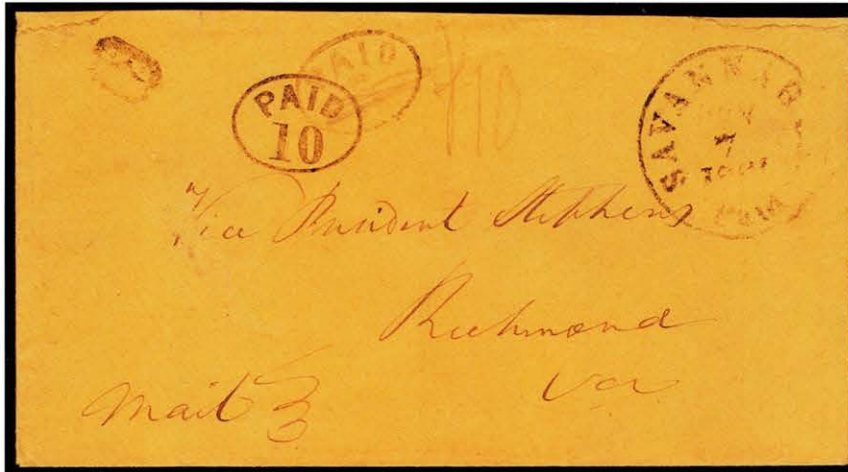 PAID
PAID
10
10
SAVANNAH
7
Vice President Stephens
Richmond
Va
Mail